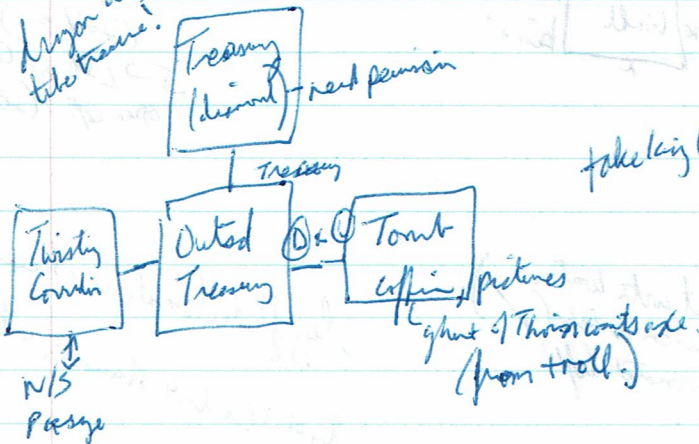 dragon
take treasure!
Treasury
(diamond) - need permission
Treasury
take king
Twisting
Corridor
Outside
Treasury
D & L
Tomb
coffin, pictures
ghost of Thorin wants axe.
(from troll.)
N/S
Passage